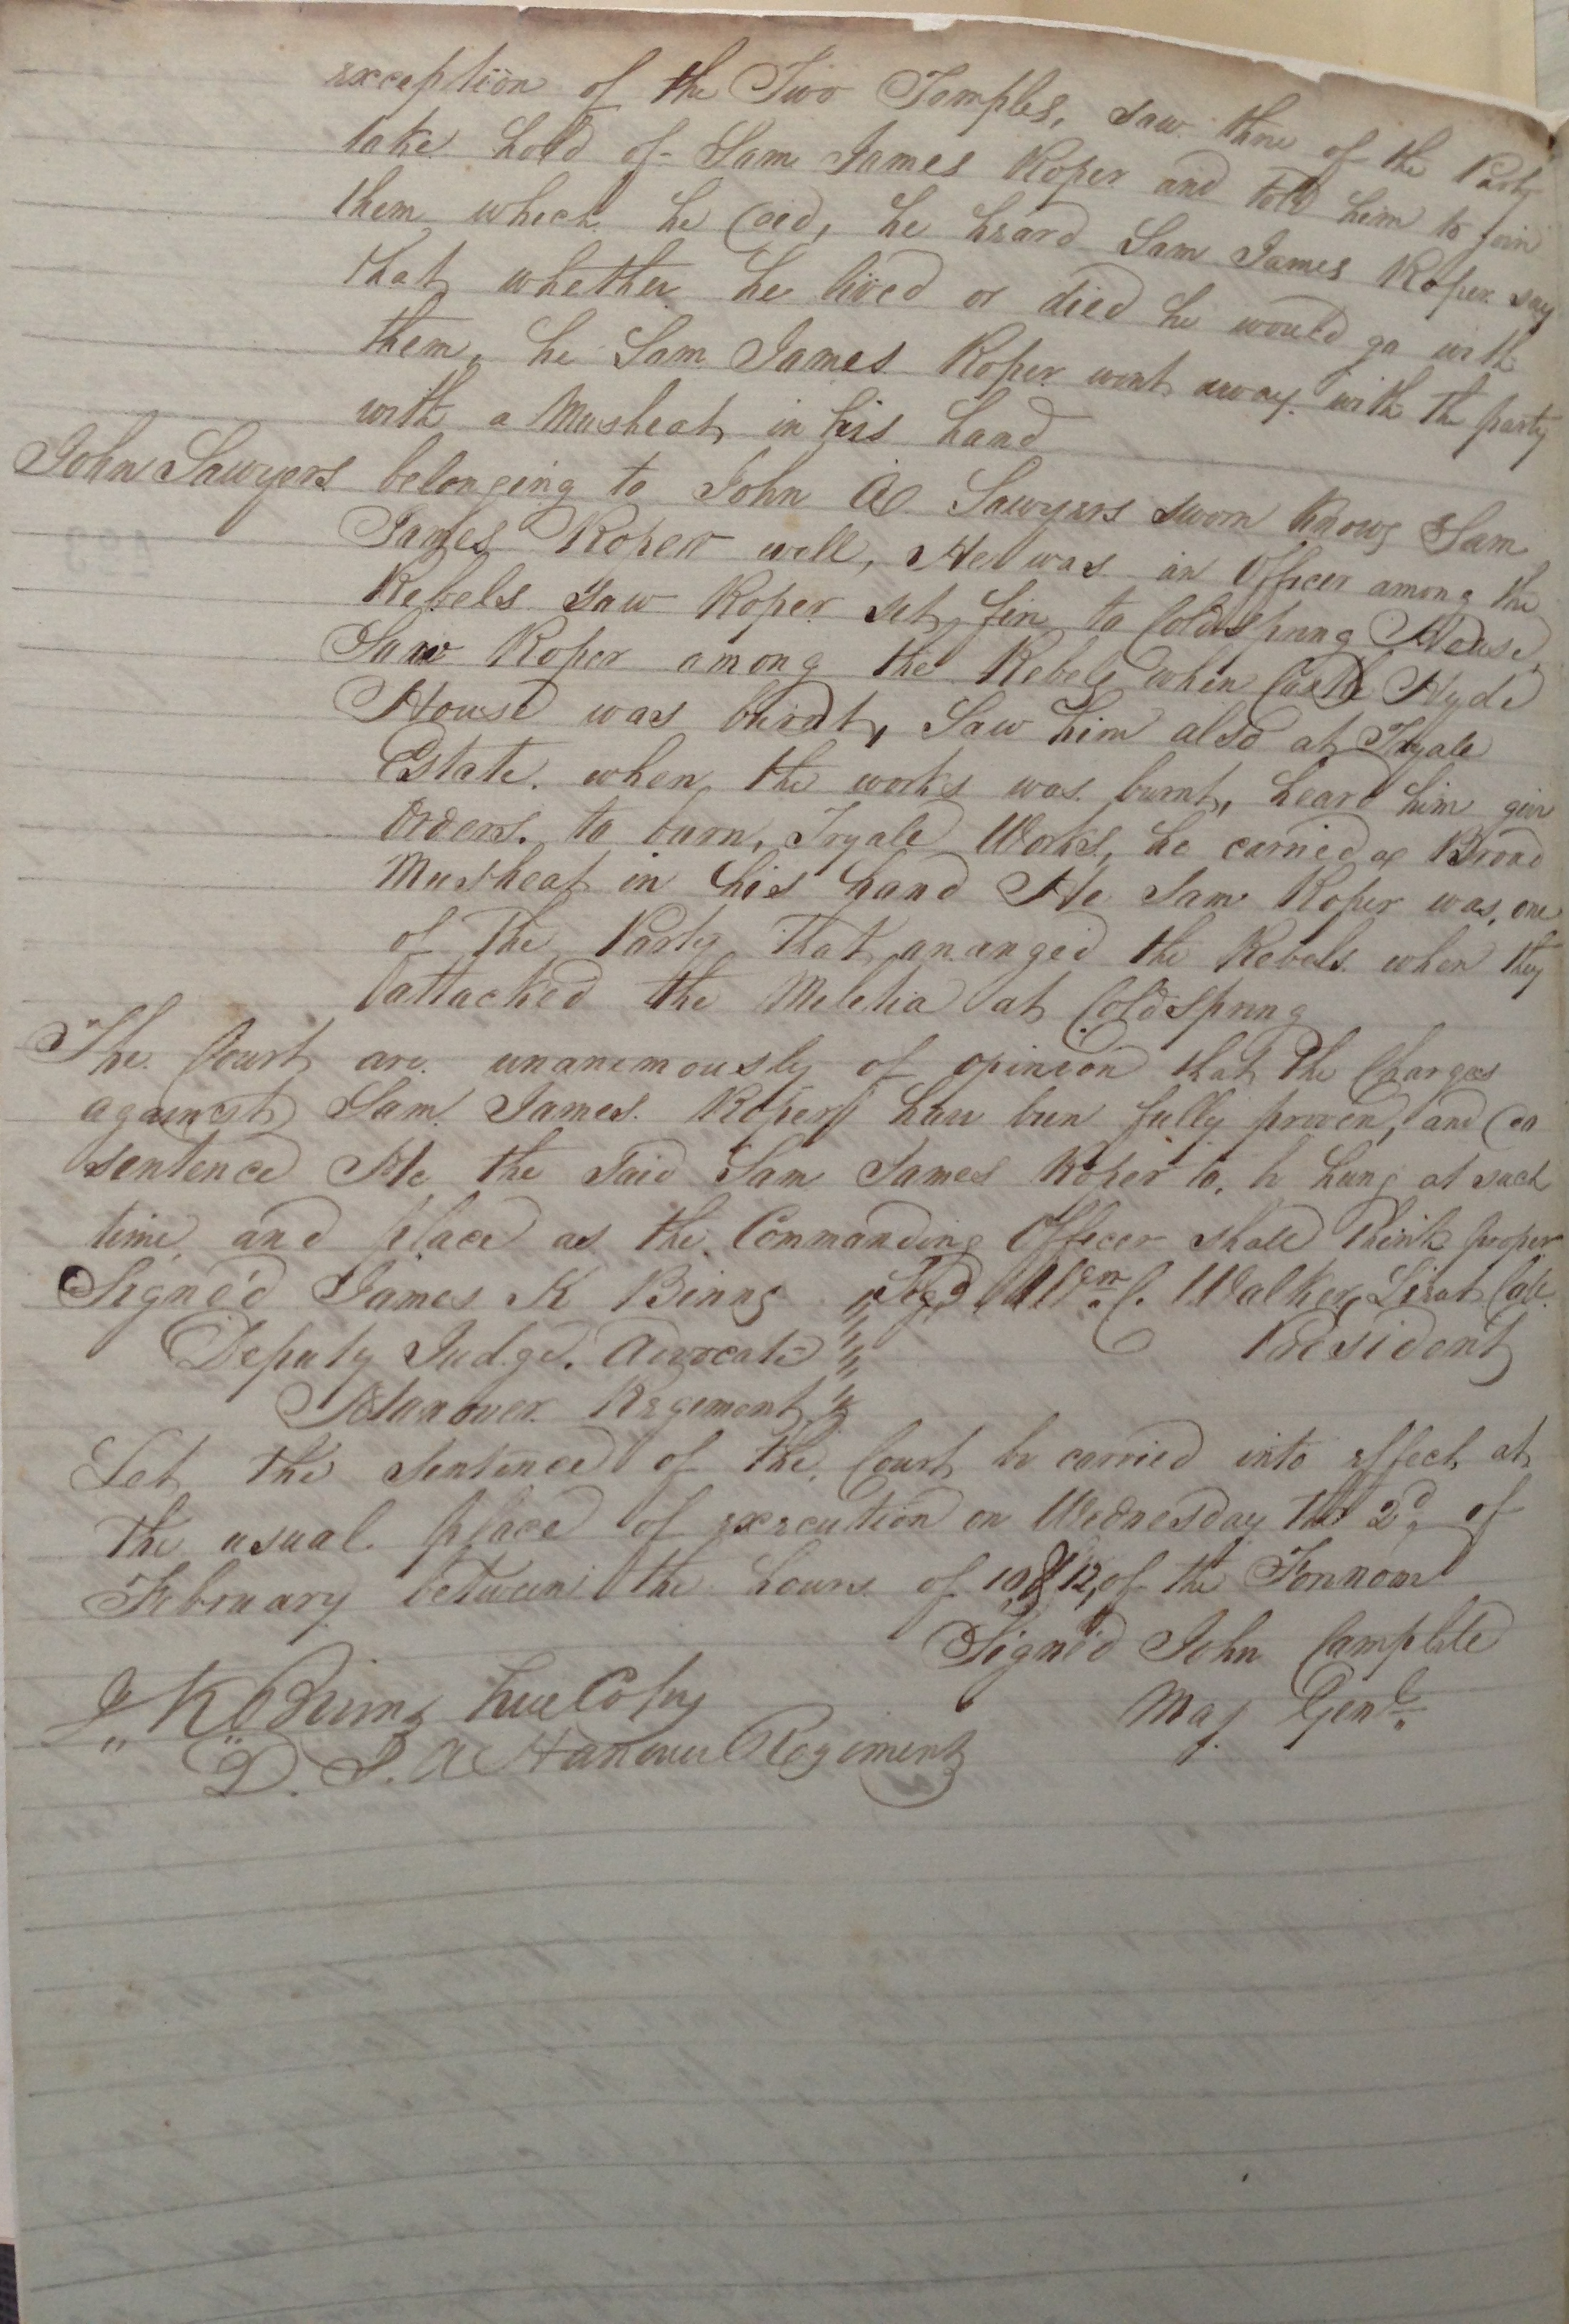 exception of the Two Temples, saw three of the Party
take hold of Sam James Roper and told him to join
them which he did, he heard Sam James Roper say
that whether he lived or died he would go with
them, he Sam James Roper went away with the party
with a Musheat in his hand
John Sawyers belonging to John A Sawyers sworn knows Sam
James Roper well, He was an Officer among the
Rebels saw Roper set fire to Coldspring House,
Saw Roper among the Rebels when Castle Hyde
House was burnt, Saw him also at Tryale
Estate. when the works was burnt, heard him give
orders. to burn, Tryale Works, he carried a Broad
Musheat in his hand He Sam Roper was, one
of the Party that arranged the Rebels when they
attacked the Meletia at Coldspring
The Court are unanemously of opinion that the Charges
against Sam James Roper have been fully proven, and do
sentence He the said Sam James Roper to, be hung at such
time and place as the Commanding Officer shall think proper
Signe'd James K Binns Sigd Wm. C. Walker, Lieut Col.
Deputy Judge. Advocate President
Hanover Regement
Let the sentence of the Court be carried into effect at
the usual place of execution on Wednesday the 2d of
February between the hours of 10 & 12, of the Fornoon
Signe'd John Campble
Maj. Genl.
J,, K,, Binns True Copy
D. J. A Hanover Regiment